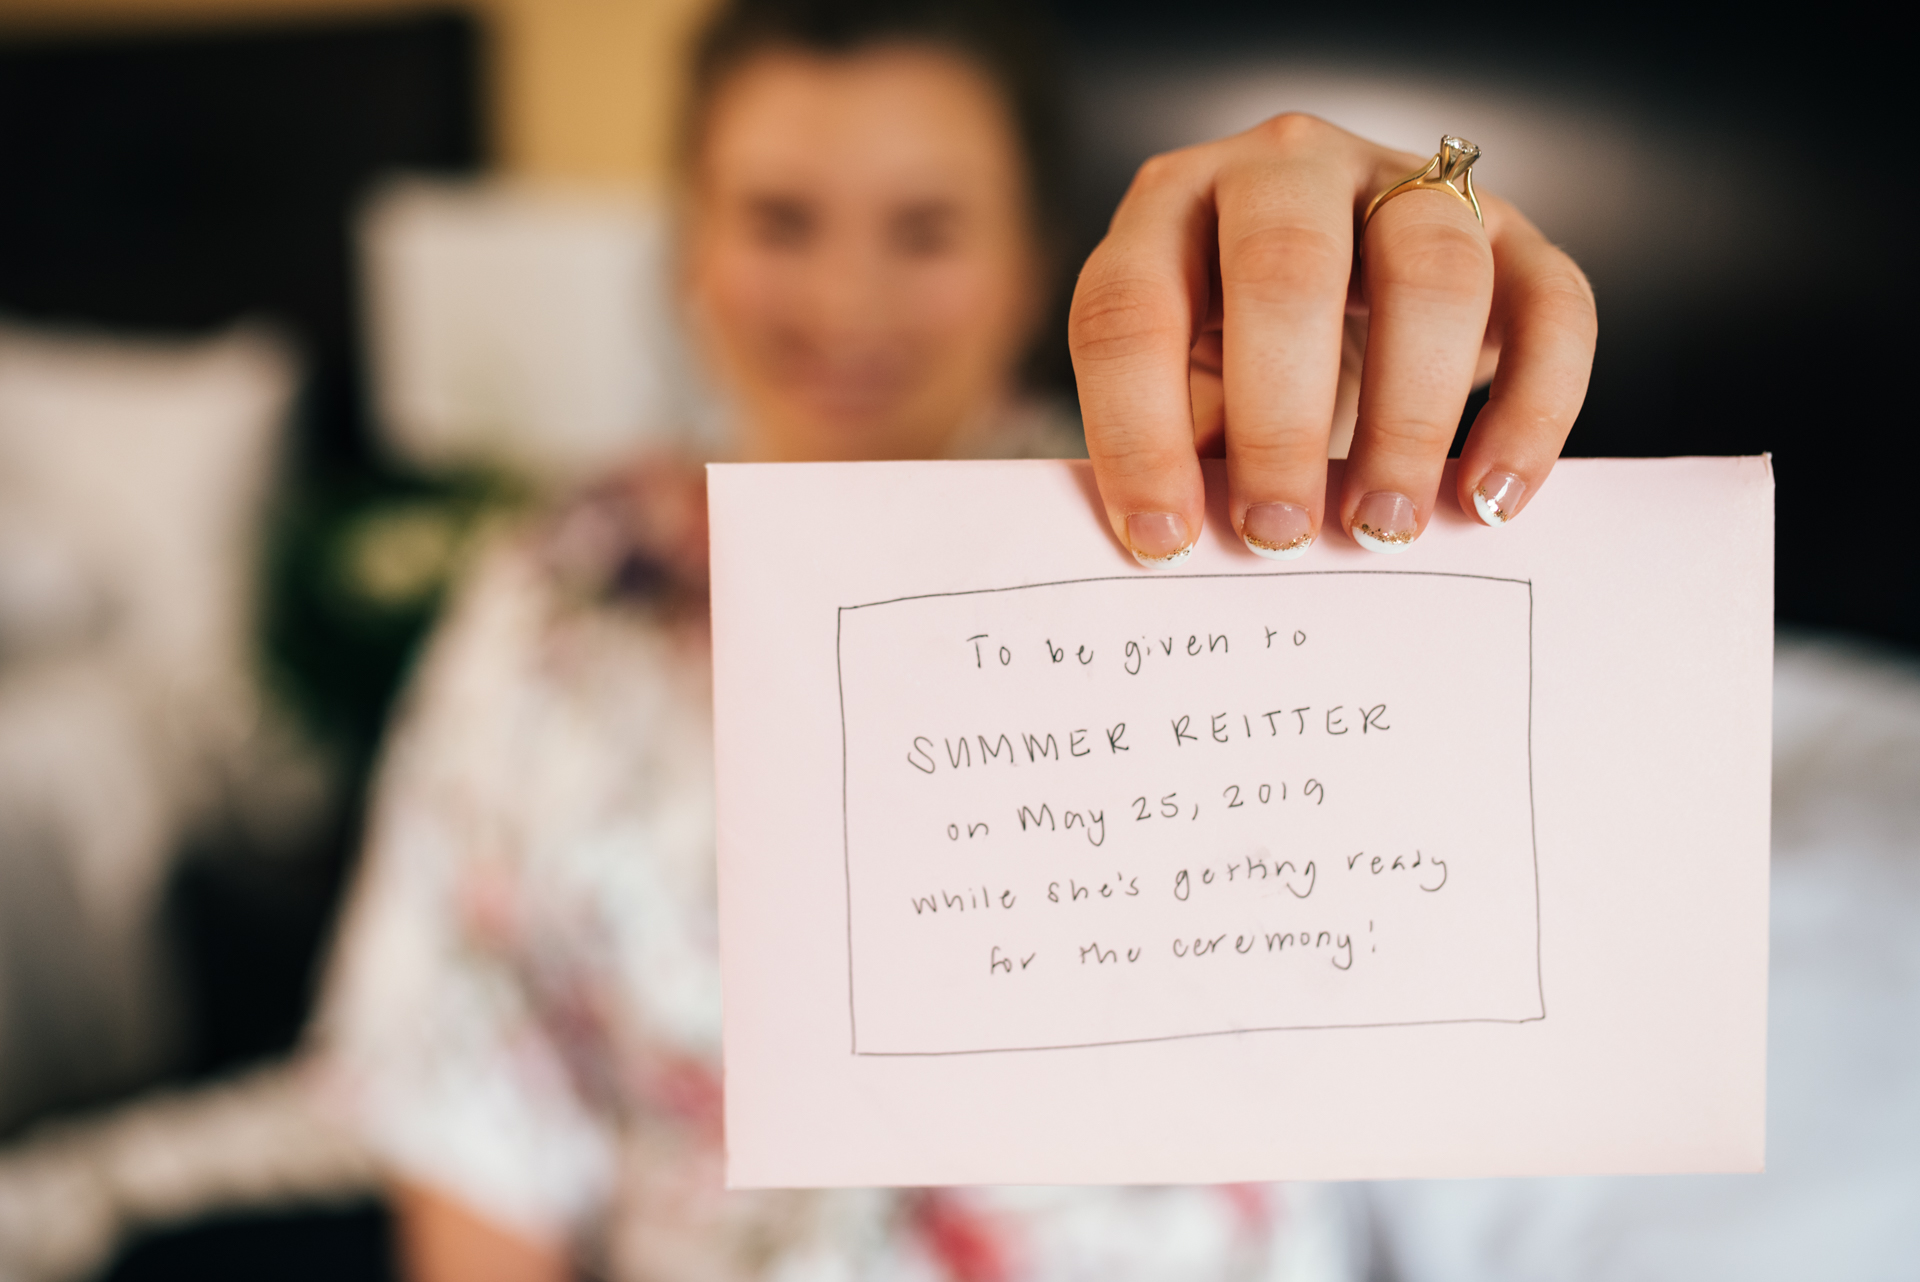 To be given to
SUMMER REITTER
on May 25, 2019
while she's getting ready
for the ceremony!